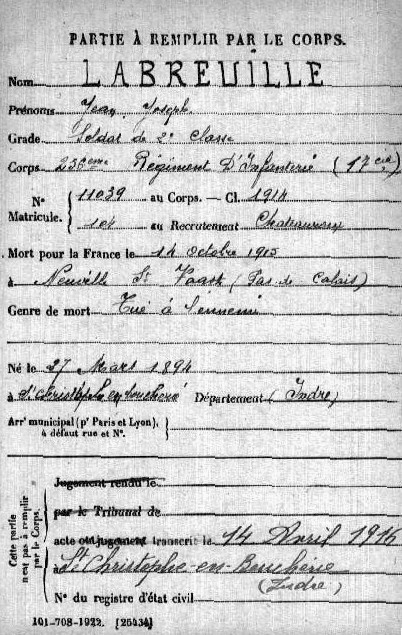 PARTIE À REMPLIR PAR LE CORPS.
Nom LABREUILLE
Prénoms Jean Joseph
Grade Soldat de 2e Classe
Corps 236eme Régiment D'Infanterie (17 cie)
N° Matricule. 11039 au Corps. — Cl. 1914
104 au Recrutement Chateauroux
Mort pour la France le 14 octobre 1915
à Neuville St Vaast (Pas de Calais)
Genre de mort Tué à l'ennemi
Né le 27 Mars 1894
à St Christophe en Boucherie Département (Indre)
Arrt municipal (pr Paris et Lyon), à défaut rue et N°.
Cette partie n'est pas à remplir par le Corps.
Jugement rendu le
par le Tribunal de
acte ou jugement transcrit le 14 Avril 1916
à St Christophe-en-Boucherie
(Indre)
N° du registre d'état civil
101-708-1922. [26434]